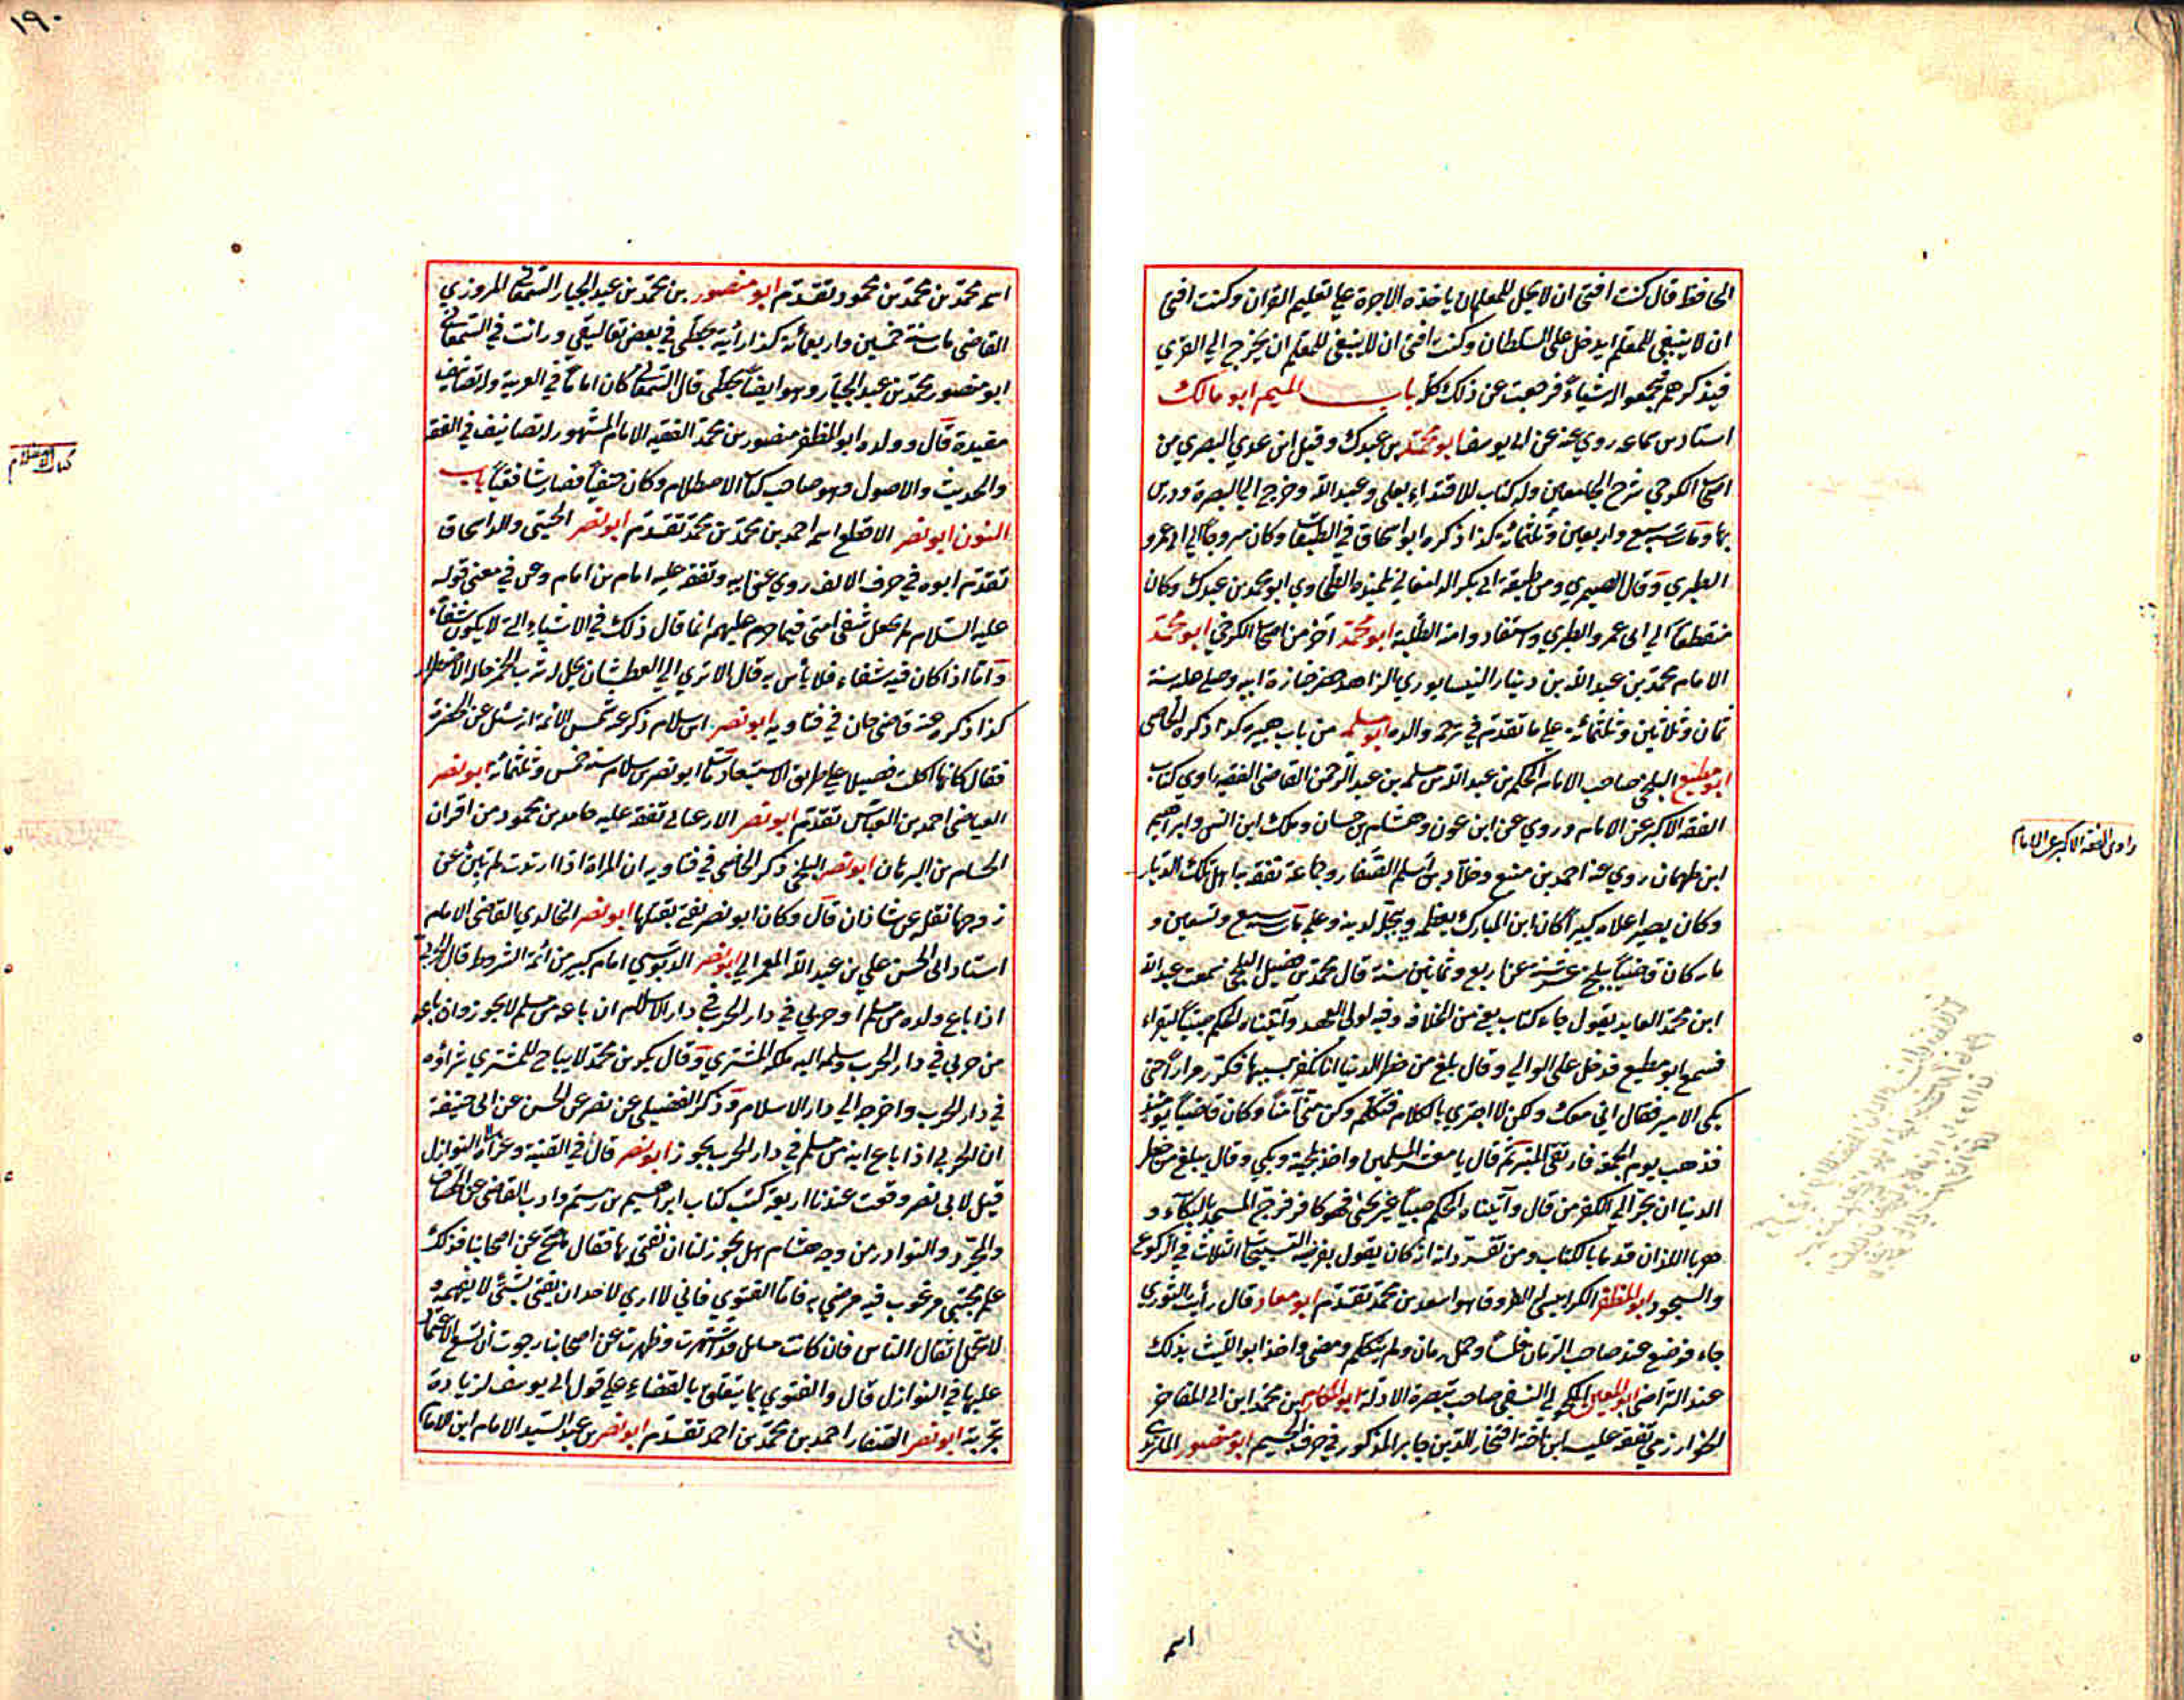 الحافظ قال كنت افتى ان لا يحل للمعلم ان ياخذه الاجرة على تعليم القران وكنت افتى
ان لا ينبغي للمعلم ان يدخل على السلطان وكنت افتى ان لا ينبغي للمعلم ان يخرج الى القرى
فيذكرهم فيجمعوا له شيئاً فرجعت عن ذلك كله باب الميم ابو مالك
استاد بن سماعه روي عنه عن ابى يوسف ابو محمد بن عبدك وقيل ابن عدي البصري من
اصحاب الكرخي شرح الجامعين وله كتاب الاقتداء بعلي وعبد الله وخرج الى البصرة ودرس
بها ومات سنة سبع واربعين وثلثمائة كذا ذكره ابو اسحاق في الطبقات وكان مزوجاً الى ابى عمرو
الطبري وقال الصيمري ومن طبقة ابى بكر الدامغاني تلميذه الطحاوي ابو محمد بن عبدك وكان
منقطعاً الى ابى عمرو الطبري واستفاد وا منه الطلبة ابو محمد اخر من اصحاب الكرخي ابو محمد
الامام محمد بن عبد الله بن دينار النيسابوري الزاهد حضر جنازة ابيه وصلى عليه سنة
ثمان وثلاثين وثلثمائة على ما تقدم في ترجمة والده ابو مسلمه من باب حبيره كذا ذكره الخاصى
ابو مطيع البلخي صاحب الامام الحكم بن عبد الله بن مسلمه بن عبد الرحمن القاضى الفقيه راوي كتاب
الفقه الاكبر عن الامام وروي عن ابن عون وهشام بن حسان وملك ابن انس وابراهيم
ابن طهمان روي عنه احمد بن منيع وخلاد بن اسلم الصفار وجماعة تفقه به اهل تلك الديار
وكان بصيرا علامه كبيراً كان ابن المبارك يعظمه ويبجله لدينه وعلمه مات سنة سبع وتسعين و
ماء كان قاضياً ببلخ عن اربع وثمانين سنة قال محمد بن فضيل البلخي سمعت عبد الله
ابن محمد العابد يقول جاء كتاب يعني من الخلافة وفيه لولى العهد وآتيناه الحكم صبياً ليقراء
فسمع ابو مطيع فدخل على الوالي وقال بلغ من خطر الدنيا انا نكفر بسببها فكرر مراراً حتى
بكى الامير فقال انى معك ولكن لا اجتري بالكلام فتكلم وكن منى آمناً وكان قاضياً يومئذ
فذهب يوم الجمعة فارتقى المنبر ثم قال يا معشر المسلمين واخذ بلحيته وبكى وقال بلغ من خطر
الدنيا ان نجر الى الكفر من قال وآتيناه الحكم صبياً غير يحيى فهو كافر فرج المسجد بالبكآء و
هربا اللذان قدما بالكتاب ومن تفرداته انه كان يقول بفرضية التسبيحات الثلاث في الركوع
والسجود ابو المظفر الكرابيسي اسعد بن محمد تقدم ابو معاد قال رأيت الثوري
جاء فوضع عند صاحب الرمان فلساً وحمل رمان ولم يتكلم ومضى واخذ ابو الليث بذلك
عند التراضي ابو المعين المكحولى النسفي صاحب تبصرة الادلة ابو المكارم بن محمد ابن ابى المفاخر
الخوارزمي تفقه عليه ابن اخته افتخار الدين جابر المذكور في حرف الجيم ابو منصور الماتريدي
راوى الفقه الاكبر عن الامام
اسم
١٩٠
اسم محمد بن محمد بن محمود تقدم ابو منصور بن محمد بن عبد الجبار السمعانى المروزي
القاضى مات سنة خمسين واربعمائة كذا رأيته بخطى في بعض تعاليقى ورائت في السمعانى
ابو منصور محمد بن عبد الجبار وهو ايضاً بخطى قال السمعانى كان اماماً في العربية وله تصانيف
مفيدة قال وولده ابو المظفر منصور بن محمد الفقيه الامام المشهور له تصانيف في الفقه
والحديث والاصول وهو صاحب كتاب الاصطلام وكان حنفياً فصار شافعياً باب
النون ابو نصر الاقطع اسمه احمد بن محمد بن محمد تقدم ابو نصر والد اسحاق
تقدم ابوه في حرف الالف روي عن ابيه وتفقه عليه امام بن امام وعن في معنى قوله
عليه السلام لم يجعل شفى امتى فيما حرم عليهم انما قال ذلك في الاشياء التى لا يكون شفاء
واما اذا كان فيه شفاء فلا بأس به قال الا ترى الى العطشان يحل له شرب الخمر حالة الاضطرار
كذا ذكره عنه قاضى خان في فتاويه ابو نصر بن سلام ذكر عنه شمس الائمة انه سئل عن
فقال كانها اكلت فصيلا على طريق الاستبعاد مات ابو نصر بن سلام سنة خمس وثلثمائة ابو نصر
العياضى احمد بن العباس تقدم ابو نصر تفقه عليه حامد بن محمود من اقران
الحسام بن البرهان ابو نصر البلخي ذكر الخاصى في فتاويه ان المراة اذا ارتدت لم تبن عن
زوجها نقله عن شاذان قال وكان ابو نصر يفتى ابو نصر الخالدي القاضى الامام
استاد ابى الحسن علي بن عبد الله ابو نصر الدبوسي امام كبير من ائمة الشروط قال
اذا باع ولده من مسلم او حربي في دار الحرب في دار الاسلام ان باعه من مسلم لا يجوز وان باعه
من حربي في دار الحرب وسلمه اليه ملكه المشتري وقال بكر بن محمد لا يباح للمشتري شراؤه
في دار الحرب واخرجه الى دار الاسلام وذكر الفضيلى عن نصر عن الحسن عن ابى حنيفة
ان الحربي اذا باع ابنه من مسلم في دار الحرب يجوز ابو نصر قال في القنية وعزاه الى النوازل
قيل لابى نصر وقعت عندنا اربعة كتب كتاب ابراهيم بن رستم وادب القاضى عن الخصاف
والمجرد والنوادر من وجه هشام هل يجوز لنا ان نفتى بها فقال ما صح عن اصحابنا فذلك
علم مجتبى مرغوب فيه مرضى به فاما الفتوي فانى لا اري لاحد ان يفتى بشئ لا يفهمه و
لا يتحمل اثقال الناس فان كانت مسايل قد اشتهرت وظهرت عن اصحابنا رجوت ان يسع الاعتماد
عليها في النوازل قال والفتوي بما يتعلق بالقضاء على قول ابى يوسف لزيادة
تجربته ابو نصر الصفار احمد بن محمد بن احمد تقدم ابو نصر بن عبد السيد الامام ابن الامام
كتاب الاصطلام